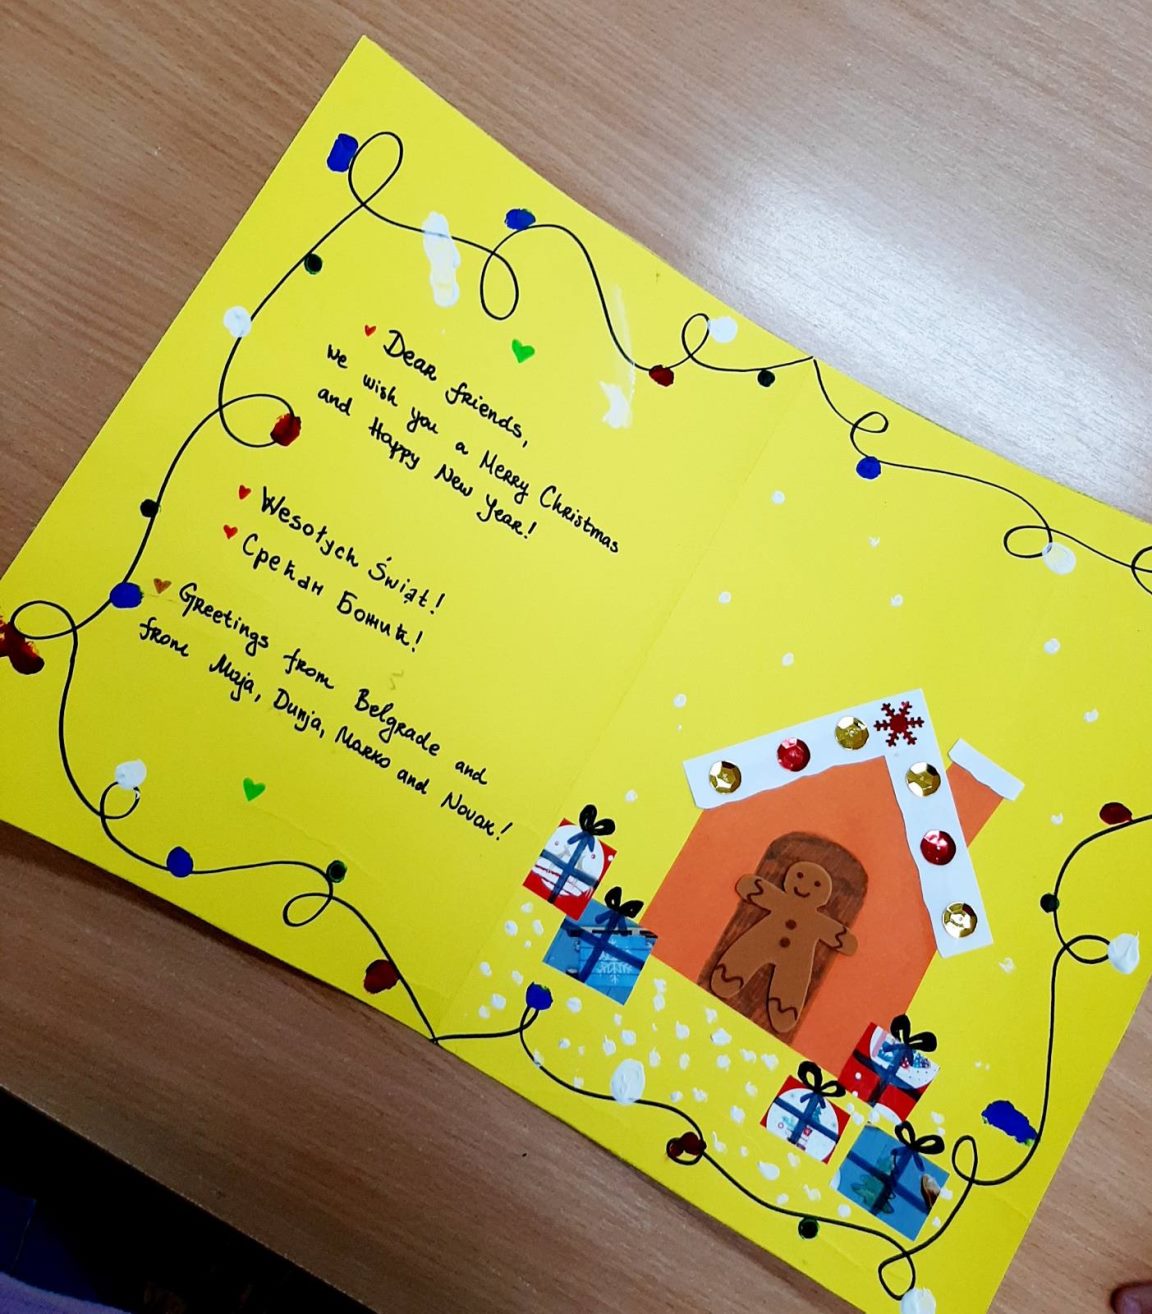 Dear friends,
we wish you a Merry Christmas
and Happy New Year!
Wesołych Świąt!
Срећан Божић!
Greetings from Belgrade and
from Maja, Dunja, Marko and Novak!